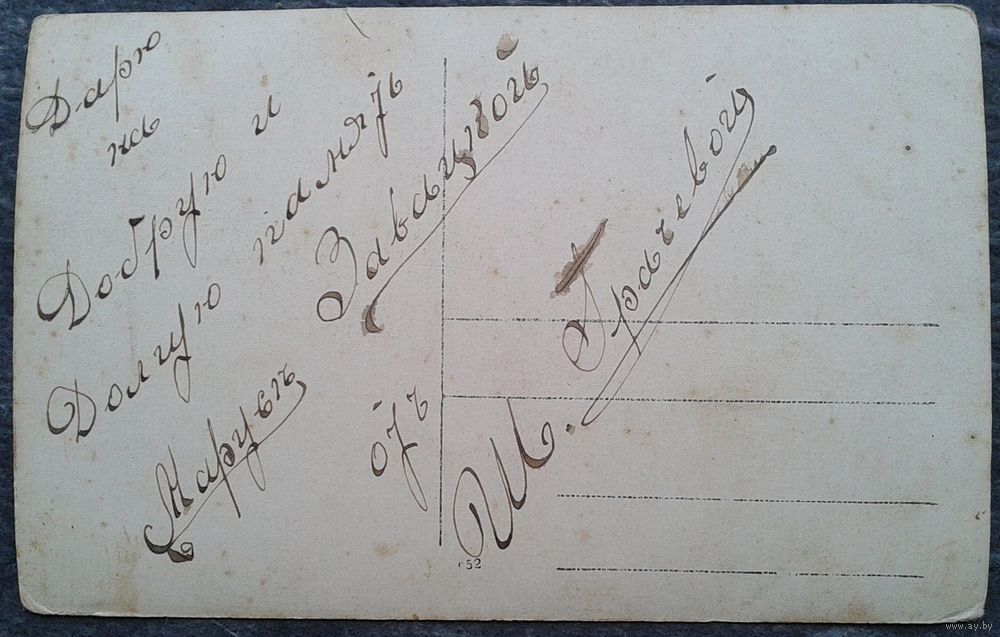 Дарю
на
Добрую и
Долгую память
Марусѣ
Завацкой
отъ
М. Грачевой
652
www.ay.by